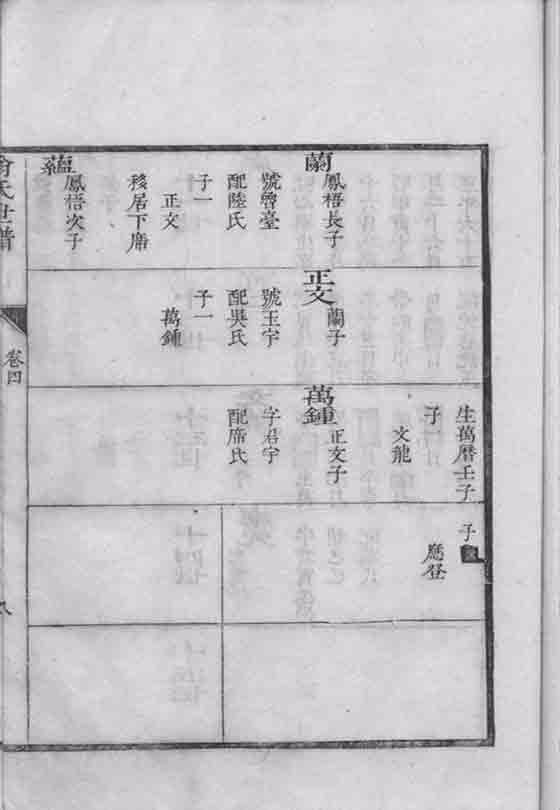 蘭
鳳梧長子
號魯臺
配陸氏
子一
正文
移居下席
蘊
鳳梧次子
正文
蘭子
號玉宇
配吳氏
子一
萬鍾
生萬曆壬子
子
文龍
萬鍾
正文子
字君宇
配席氏
子
應登
氏世譜
卷四